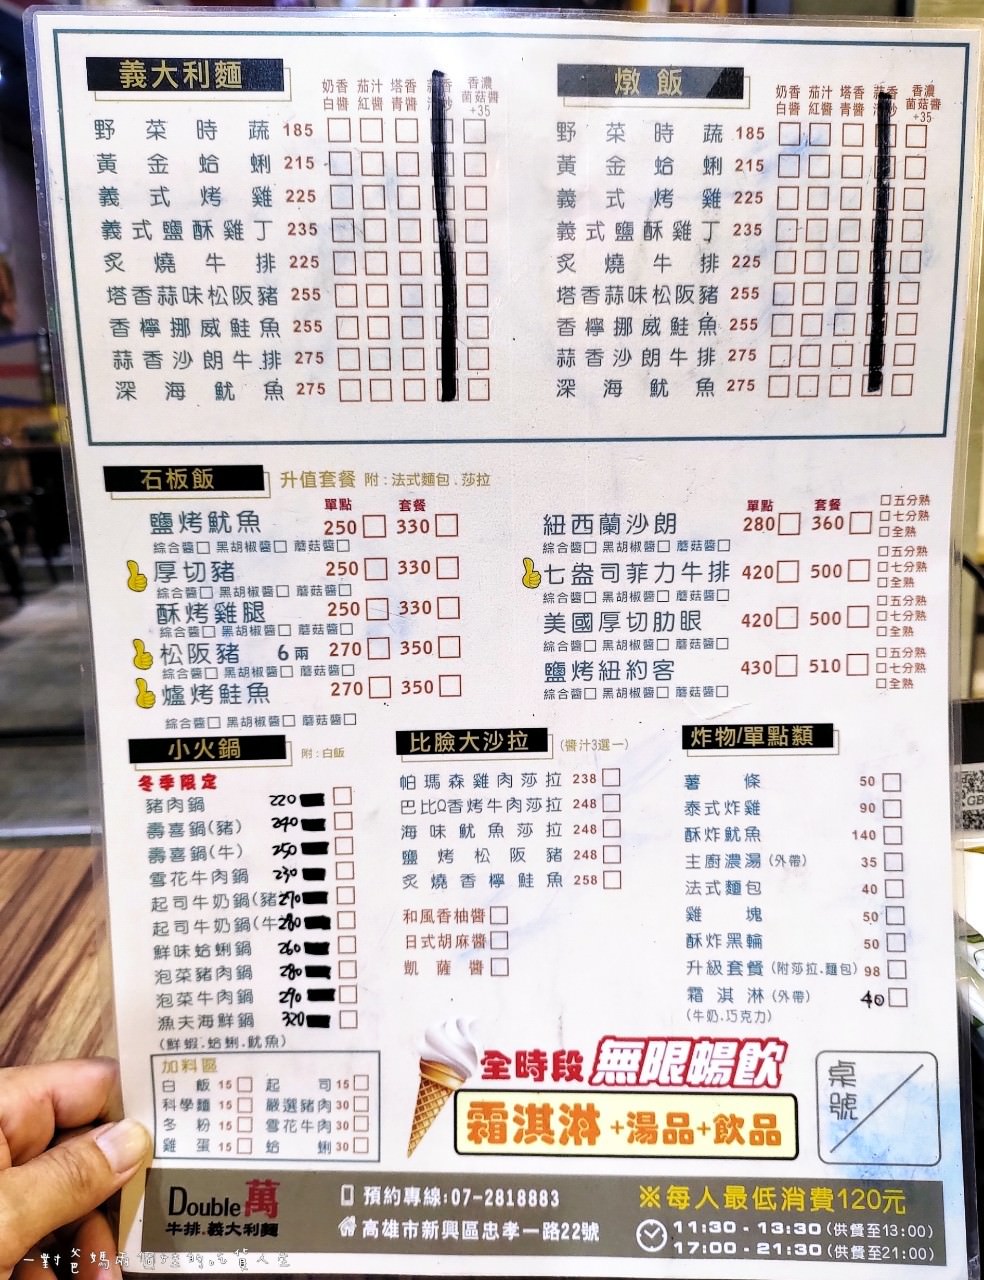 義大利麵
奶香白醬 茄汁紅醬 塔香青醬 香濃菌菇醬+35
野菜時蔬 185
黃金蛤蜊 215
義式烤雞 225
義式鹽酥雞丁 235
炙燒牛排 225
塔香蒜味松阪豬 255
香檸挪威鮭魚 255
蒜香沙朗牛排 275
深海魷魚 275
燉飯
奶香白醬 茄汁紅醬 塔香青醬 香濃菌菇醬+35
野菜時蔬 185
黃金蛤蜊 215
義式烤雞 225
義式鹽酥雞丁 235
炙燒牛排 225
塔香蒜味松阪豬 255
香檸挪威鮭魚 255
蒜香沙朗牛排 275
深海魷魚 275
石板飯 升值套餐 附:法式麵包.莎拉
單點 套餐
鹽烤魷魚 250 330
綜合醬 黑胡椒醬 蘑菇醬
厚切豬 250 330
綜合醬 黑胡椒醬 蘑菇醬
酥烤雞腿 250 330
綜合醬 黑胡椒醬 蘑菇醬
松阪豬 6兩 270 350
綜合醬 黑胡椒醬 蘑菇醬
爐烤鮭魚 270 350
綜合醬 黑胡椒醬 蘑菇醬
單點 套餐
紐西蘭沙朗 280 360 五分熟 七分熟 全熟
綜合醬 黑胡椒醬 蘑菇醬
七盎司菲力牛排 420 500 五分熟 七分熟 全熟
綜合醬 黑胡椒醬 蘑菇醬
美國厚切肋眼 420 500 五分熟 七分熟 全熟
綜合醬 黑胡椒醬 蘑菇醬
鹽烤紐約客 430 510 五分熟 七分熟 全熟
綜合醬 黑胡椒醬 蘑菇醬
小火鍋 附:白飯
冬季限定
豬肉鍋 220
壽喜鍋(豬) 240
壽喜鍋(牛) 250
雪花牛肉鍋 230
起司牛奶鍋(豬 270
起司牛奶鍋(牛 280
鮮味蛤蜊鍋 260
泡菜豬肉鍋 280
泡菜牛肉鍋 290
漁夫海鮮鍋 320
(鮮蝦.蛤蜊.魷魚)
加料區
白飯 15 起司 15
科學麵 15 嚴選豬肉 30
冬粉 15 雪花牛肉 30
雞蛋 15 蛤蜊 30
比臉大沙拉 (醬汁3選一)
帕瑪森雞肉莎拉 238
巴比Q香烤牛肉莎拉 248
海味魷魚莎拉 248
鹽烤松阪豬 248
炙燒香檸鮭魚 258
和風香柚醬
日式胡麻醬
凱薩醬
炸物/單點類
薯條 50
泰式炸雞 90
酥炸魷魚 140
主廚濃湯(外帶) 35
法式麵包 40
雞塊 50
酥炸黑輪 50
升級套餐(附莎拉.麵包) 98
霜淇淋(外帶) 40
(牛奶.巧克力)
全時段無限暢飲
霜淇淋+湯品+飲品
桌號
Double萬
牛排.義大利麵
預約專線:07-2818883
高雄市新興區忠孝一路22號
※每人最低消費120元
11:30 - 13:30(供餐至13:00)
17:00 - 21:30(供餐至21:00)